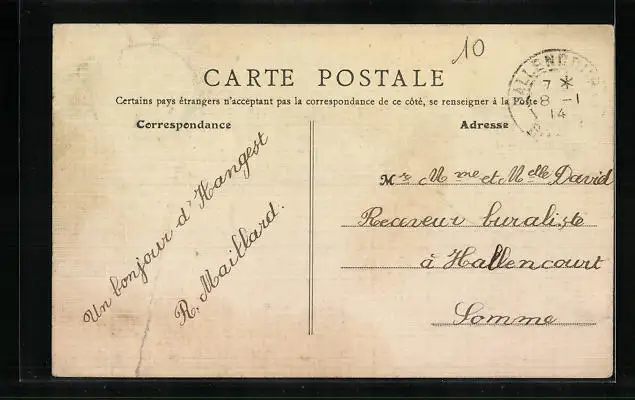 10
CARTE POSTALE
Certains pays étrangers n'acceptant pas la correspondance de ce côté, se renseigner à la Poste
HALLENCOURT
7 *
8 -1
14
Correspondance
Adresse
Un bonjour d'Hangest
R. Maillard.
Mr Mme et Melle David
Receveur buraliste
à Hallencourt
Somme